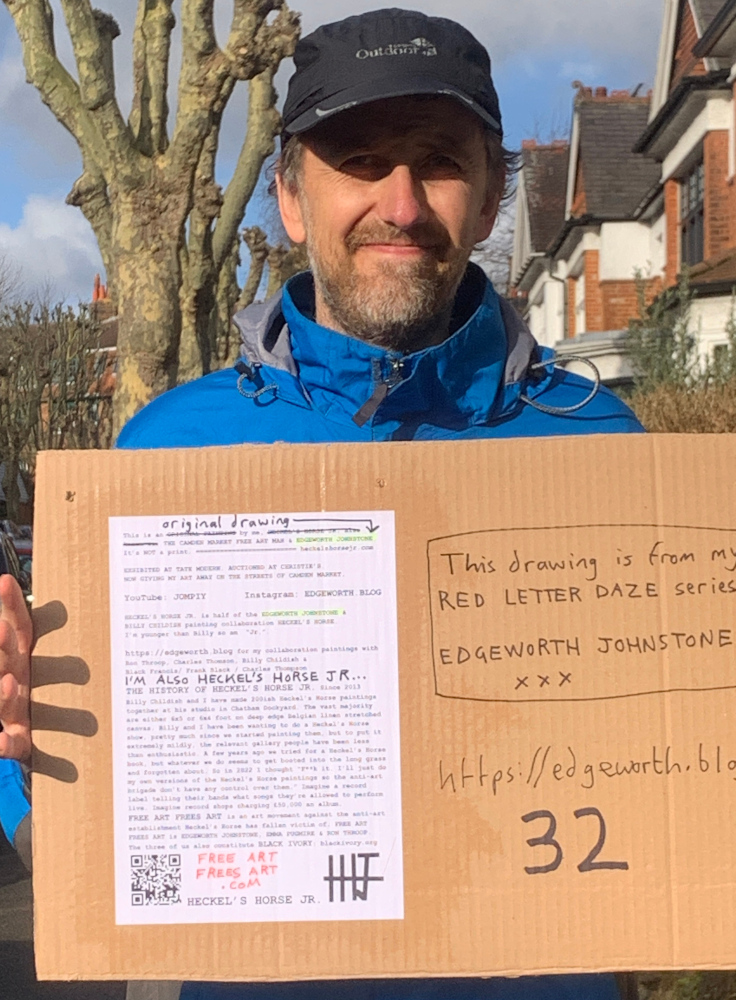 Outdoor
original drawing
This is an ORIGINAL PAINTING by me, HECKEL'S HORSE JR. also
THE CAMDEN MARKET FREE ART MAN & EDGEWORTH JOHNSTONE
It's NOT a print. heckelshorsejr.com
EXHIBITED AT TATE MODERN. AUCTIONED AT CHRISTIE'S
NOW GIVING MY ART AWAY ON THE STREETS OF CAMDEN MARKET.
YouTube: JOMPIY Instagram: EDGEWORTH.BLOG
HECKEL'S HORSE JR. is half of the EDGEWORTH JOHNSTONE &
BILLY CHILDISH painting collaboration HECKEL'S HORSE.
I'm younger than Billy so am "Jr."
https://edgeworth.blog for my collaboration paintings with
Ron Throop, Charles Thomson, Billy Childish &
Black Francis/ Frank Black / Charles Thompson
I'M ALSO HECKEL'S HORSE JR...
THE HISTORY OF HECKEL'S HORSE JR. Since 2013
Billy Childish and I have made 200ish Heckel's Horse paintings
together at his studio in Chatham Dockyard. The vast majority
are either 6x5 or 6x4 foot on deep edge Belgian linen stretched
canvas. Billy and I have been wanting to do a Heckel's Horse
show, pretty much since we started painting them, but to put it
extremely mildly, the relevant gallery people have been less
than enthusiastic. A few years ago we tried for a Heckel's Horse
book, but whatever we do seems to get booted into the long grass
and forgotten about. So in 2022 I thought "f**k it. I'll just do
my own versions of the Heckel's Horse paintings so the anti-art
brigade don't have any control over them." Imagine a record
label telling their bands what songs they're allowed to perform
live. Imagine record shops charging £30,000 an album.
FREE ART FREES ART is an art movement against the anti-art
establishment Heckel's Horse has fallen victim of. FREE ART
FREES ART is EDGEWORTH JOHNSTONE, EMMA PUGMIRE & RON THROOP
The three of us also constitute BLACK IVORY: blackivory.org
FREE ART
FREES ART
.COM
HECKEL'S HORSE JR.
HJ
This drawing is from my
RED LETTER DAZE series
EDGEWORTH JOHNSTONE
xxx
https://edgeworth.blog
32